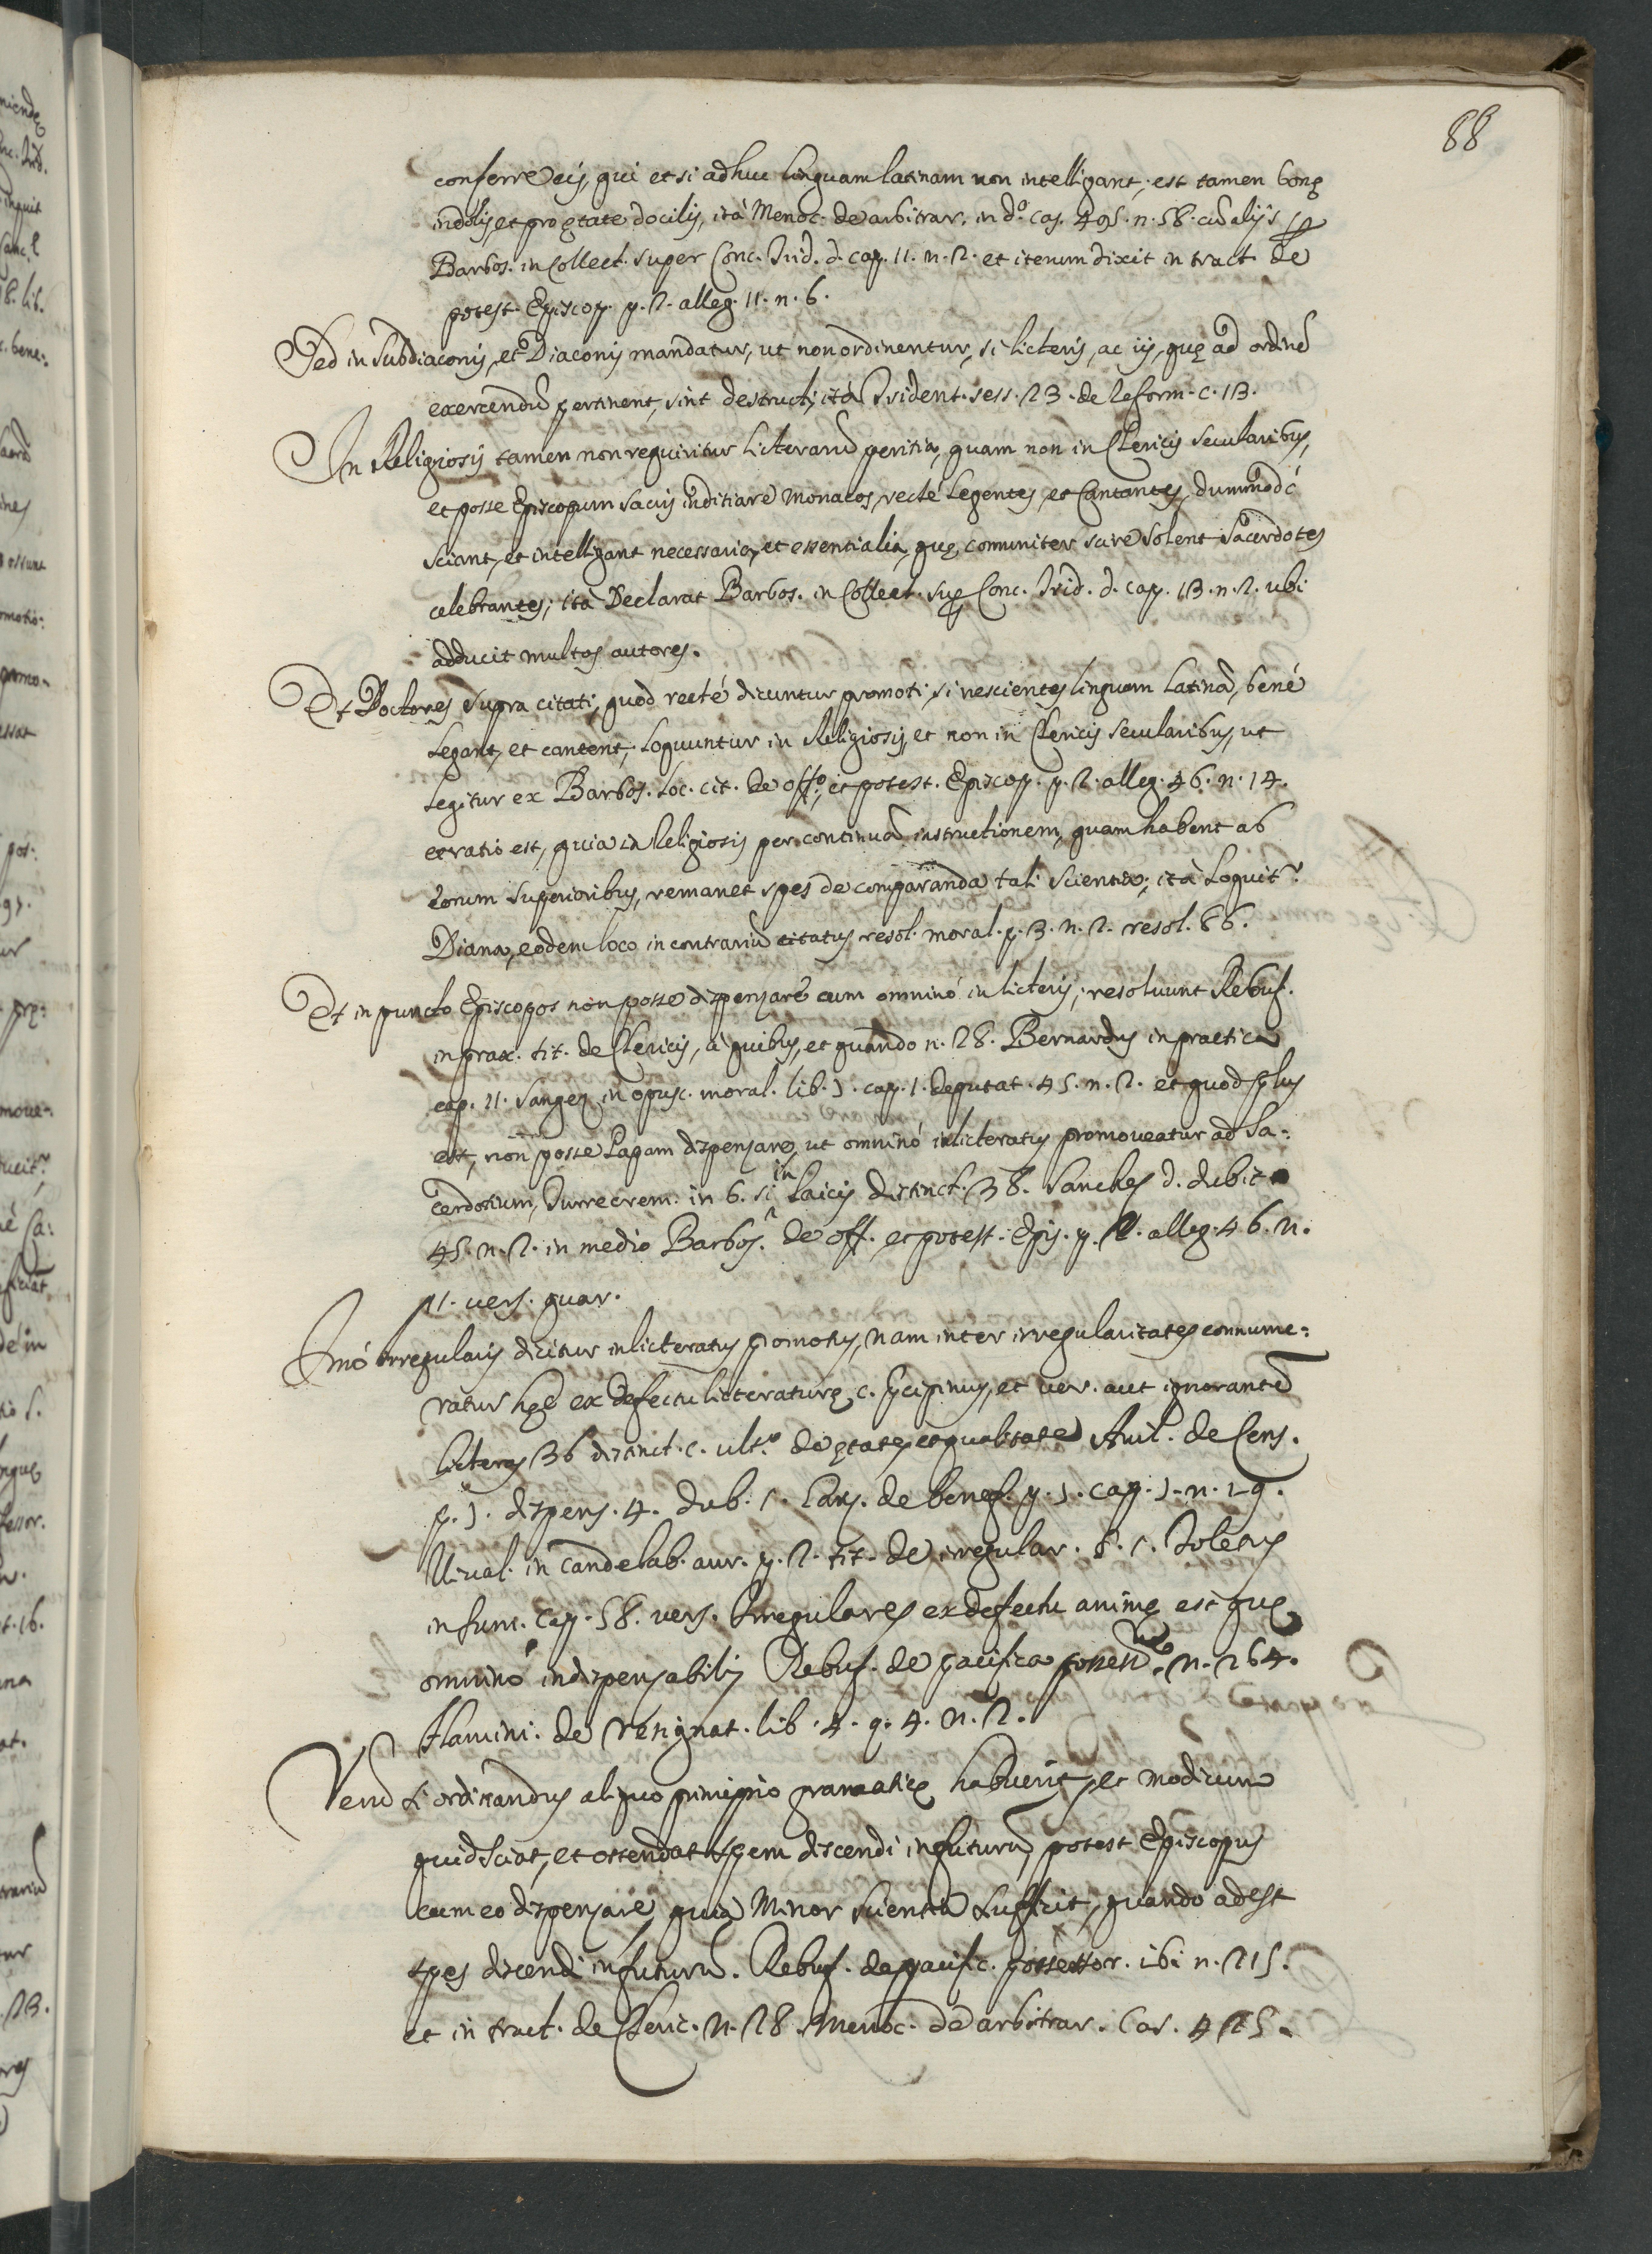 88
conferre eis, qui etsi adhuc linguam latinam non intelligant, est tamen bonę
indolis, et pro ętate docilis, ità Menoc. de arbitrar. in d.º cas. 495. n. 58. cũ alijs
Barbos. in Collect. super Conc. Trid. d. cap. 11. n. 2. et iterum dixit in tract. de
potest. Episcop. p. 2. alleg. 11. n. 6.
Sed in Subdiaconis, et Diaconis mandatur, ut non ordinentur, si licteris, ac iis, quę ad ordinẽ
exercendũ pertinent, sint destructi, ità Trident. sess. 23. de Reform. c. 13.
In Religiosis tamen non requiritur Licterarũ peritia, quam non in Clericis Secularibus,
et posse Episcopum sacris inditiare Monacos, recté Legentes, et Cantantes, dummodó
sciant, et intelligant necessaria, et essentialia, quę comuniter scire solent Sacerdotes
celebrantes; ità Declarat Barbos. in Collect. sup. Conc. Trid. d. cap. 13. n. 2. ubi
adducit multos autores.
Et Doctores supra citati, quod recté dicuntur promoti, si nescientes linguam Latinã, bené
Legant, et cantent, Loquuntur in Religiosis, et non in Clericis Secularibus, ut
Legitur ex Barbos. Loc. cit. de off.º, et potest. Episcop. p. 2. alleg. 46. n. 14.
et ratio est, quia in Religiosis per continuã instructionem, quam habent ab
eorum Superioribus, remanet spes de comparanda tali scientia; ità Loquit.r
Diana, eodem loco in contrariũ citatus resol. moral. p. 3. n. 2. resol. 86.
Et in puncto Episcopos non posse dispensare cum omninó inlicteris, resoluunt Rebuf.
in prax. tit. de Clericis, à quibus, et quando n. 28. Bernardus in practica
cap. 11. Sanges in opusc. moral. lib. J. cap. 1. deputat. 45. n. 2. et quod plus
est, non posse Papam dispensare, ut omninó inlicteratus promoveatur ad Sa:
cerdotium, Turrecrem. in 6. si in Laicis distinct. 38. Sanches d. dubit.
45. n. 2. in medio Barbos. de off. et potest. Epis. p. 2. alleg. 46. n.
11. vers. quar.
Imó irregularis dicitur inlicteratus promotus, nam inter irregularitates connume:
ratur hęc ex defectu licteraturę c. pręcipimus, et ver. aut ignorantẽ
licteras 36 distinct. c. ult.º de ętate, et qualitate Auil. de Cens.
p. J. dispens. 4. dub. 1. Garz. de benef. p. J. cap. J. n. 29.
Uiual. in Candelab. aur. p. 2. tit. de irregular. §. 1. Toletus
in sum. Cap. 58. vers. Irregulares ex defectu animę est quę
omninó indispensabilis Rebuf. de pacifica possess. n. 264.
Flamini. de resignat. lib. 4. q. 4. n. 2.
Verũ si ordinandus aliquo principio gramaticę habuerit, et modicum
quid sciat, et ostendat spem discendi in futurũ, potest Episcopus
cum eo dispensare, quia Minor scientia sufficit, quando adest
spes discendi in futurũ. Rebuf. de pacific. possessor. ibi n. 215.
et in tract. de Cleric. n. 28. Menoc. de arbitrar. Cas. 425.